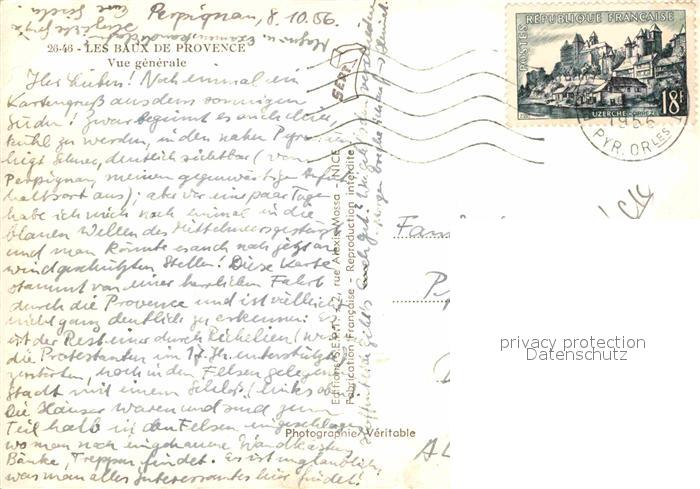 Perpignan, 8.10.56.
26-46 - LES BAUX DE PROVENCE
Vue générale
Ihr Lieben! Noch einmal ein
Kartengruß aus dem sonnigen
Süden! Zwar beginnt es auch hier,
kühl zu werden, in den nahen Pyrenäen
liegt Schnee, deutlich sichtbar (von
Perpignan, meinem gegenwärtigen Aufent-
haltsort aus); aber vor ein paar Tagen
habe ich mich noch einmal in die
blauen Wellen des Mittelmeers gestürzt
und man könnte es auch noch jetzt an
windgeschützten Stellen! Diese Karte
stammt von einer herrlichen Fahrt
durch die Provence und ist vielleicht
nicht ganz deutlich zu erkennen: Es
ist der Rest einer durch Richelieu (weil
die Protestanten im 17. Jh. unterstützte)
zerstörten, hoch in den Felsen gelegenen
Stadt mit einem Schloß (links oben)
Die Häuser waren und sind zum
Teil halb in den Felsen eingeschlagen
wo man noch eingehauene Wandkästen,
Bänke, Treppen findet. Es ist unglaublich,
was man alles Interessantes hier findet!
SERP
Editions S.E.R.P.T. - 42, rue Alexis Mossa - NICE
Fabrication Française - Reproduction interdite
Photographie Véritable
POSTES
RÉPUBLIQUE FRANÇAISE
UZERCHE
18F
1956
PYR. ORLES
Fam
P
privacy protection
Datenschutz